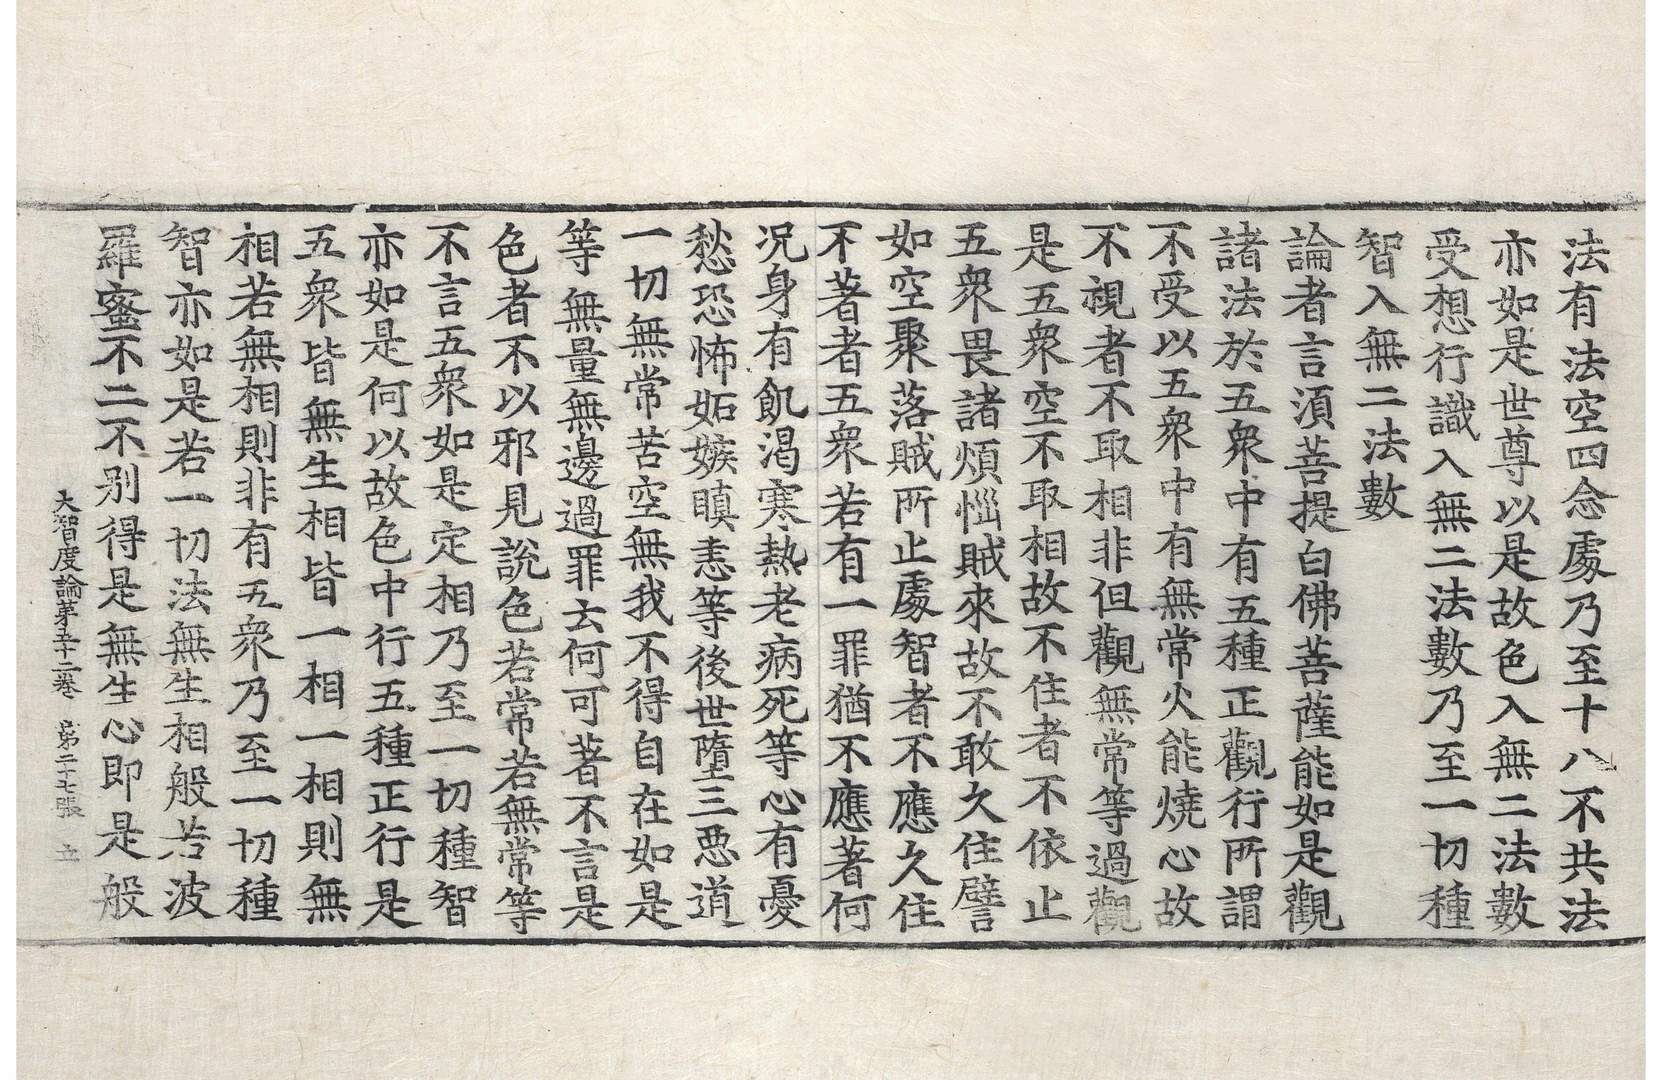 法有法空四念處乃至十八不共法
亦如是世尊以是故色入無二法數
受想行識入無二法數乃至一切種
智入無二法數
論者言湏菩提白佛菩薩能如是觀
諸法於五衆中有五種正觀行所謂
不受以五衆中有無常火能燒心故
不視者不取相非但觀無常等過觀
是五衆空不取相故不住者不依止
五衆畏諸煩惱賊來故不敢久住譬
如空聚落賊所止處智者不應久住
不著者五衆若有一罪猶不應著何
况身有飢渴寒熱老病死等心有憂
愁恐怖妬嫉瞋恚等後世墮三惡道
一切無常苦空無我不得自在如是
等無量無邊過罪云何可著不言是
色者不以邪見說色若常若無常等
不言五衆如是定相乃至一切種智
亦如是何以故色中行五種正行是
五衆皆無生相皆一相一相則無
相若無相則非有五衆乃至一切種
智亦如是若一切法無生相般若波
羅蜜不二不别得是無生心即是般
大智度論第五十二卷 第二十七張 立